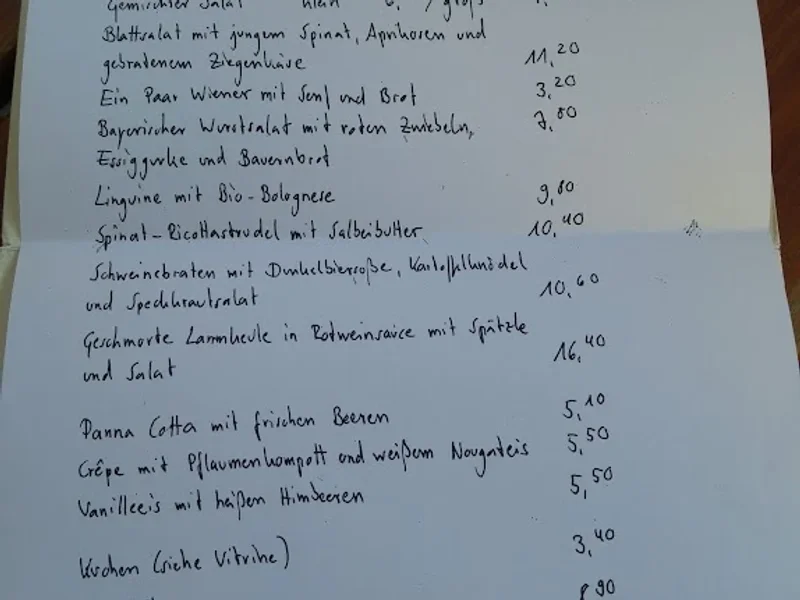 Gemischter Salat klein / groß
Blattsalat mit jungem Spinat, Aprikosen und
gebratenem Ziegenkäse 11,20
Ein Paar Wiener mit Senf und Brot 3,20
Bayerischer Wurstsalat mit roten Zwiebeln, 7,80
Essiggurke und Bauernbrot
Linguine mit Bio-Bolognese 9,80
Spinat-Ricottastrudel mit Salbeibutter 10,40
Schweinebraten mit Dunkelbiersoße, Kartoffelknödel
und Speckkrautsalat 10,60
Geschmorte Lammkeule in Rotweinsauce mit Spätzle
und Salat 16,40
Panna Cotta mit frischen Beeren 5,10
Crêpe mit Pflaumenkompott und weißem Nougateis 5,50
Vanilleeis mit heißen Himbeeren 5,50
Kuchen (siehe Vitrine) 3,40